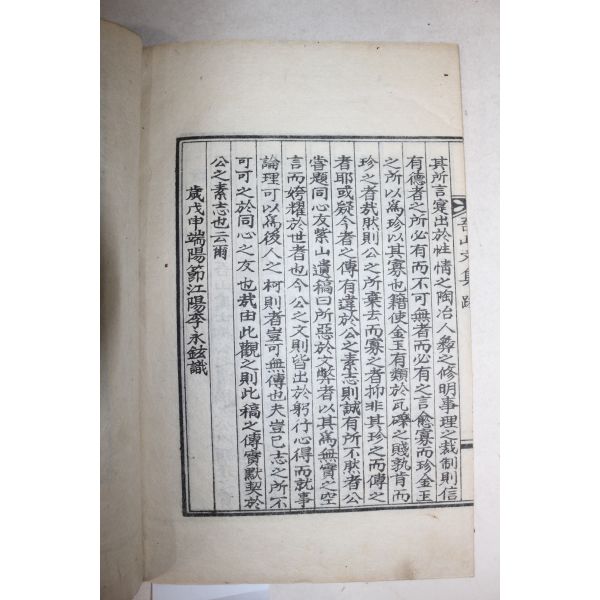 吾山文集 跋
其所言寔出於性情之陶冶人彛之修明事理之裁制則信
有德者之所必有而不可無者而必有之言愈寡而珍金玉
之所以爲珍以其寡也籍使金玉有類於瓦礫之賤孰肯而
珍之者哉然則公之所棄去而寡之者抑非其珍之而傳之
者耶或疑今者之傳有違於公之素志則誠有所不然者公
嘗題同心友紫山遺稿曰所惡於文弊者以其爲無實之空
言而姱耀於世者也今公之文則皆出於躬行心得而就事
論理可以爲後人之柯則者豈可無傳也夫豈已志之所不
可可之於同心之友也哉由此觀之則此稿之傳實默契於
公之素志也云爾
歲戊申端陽節江陽李永鉉識